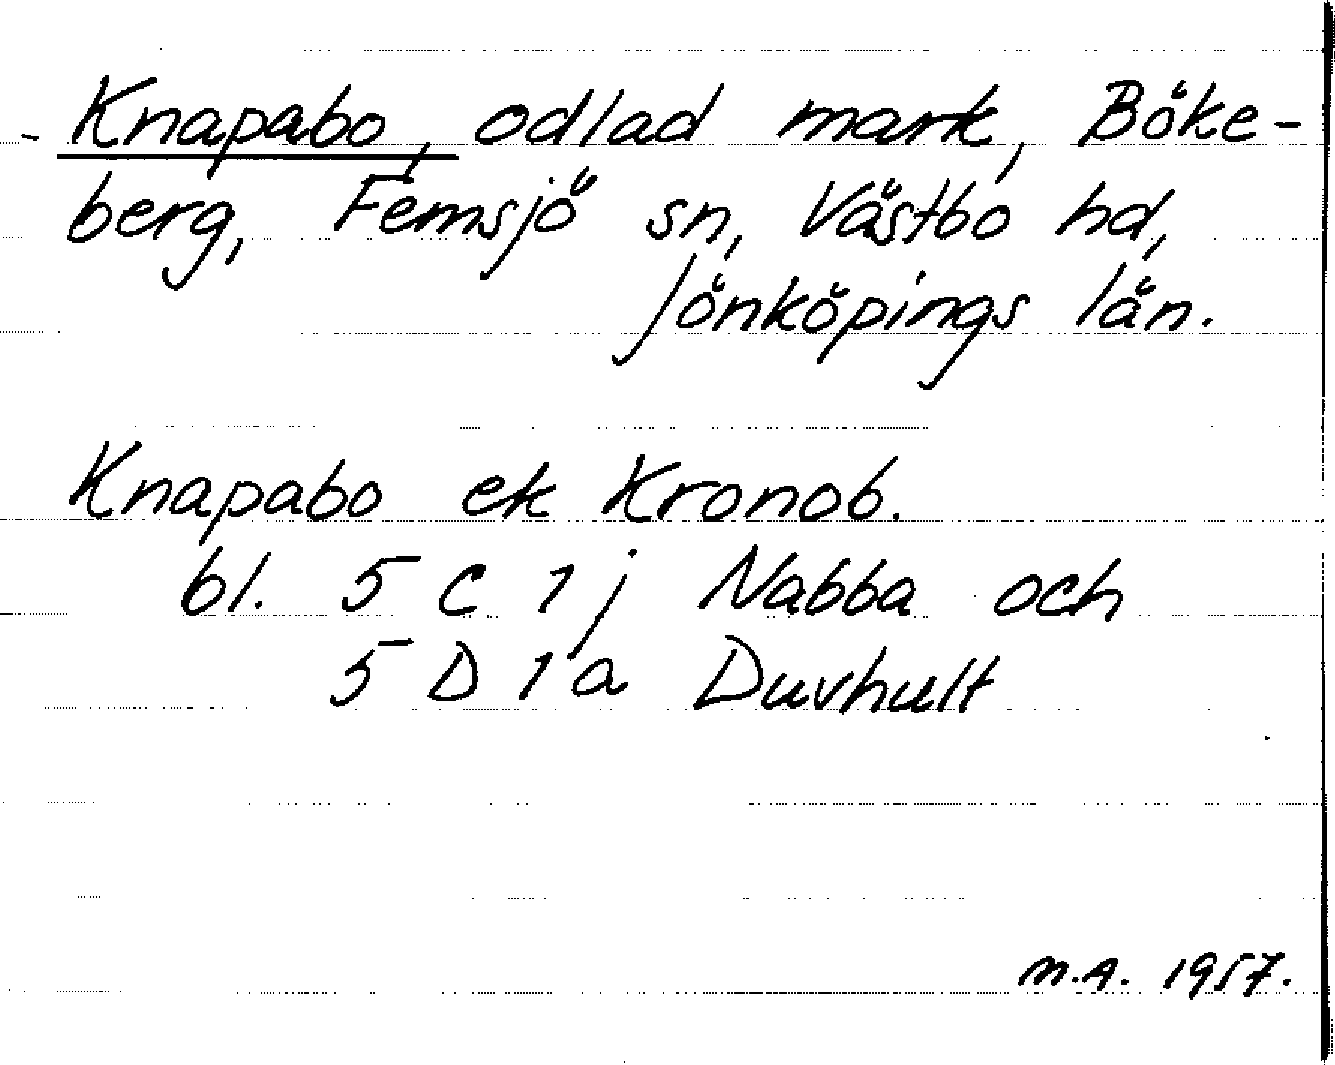 - Knapabo, odlad mark, Böke-
berg, Femsjö sn, Västbo hd,
Jönköpings län.
Knapabo ek Kronob.
bl. 5 C 1 j Nabba och
5 D 1 a Duvhult
M.A. 1957.